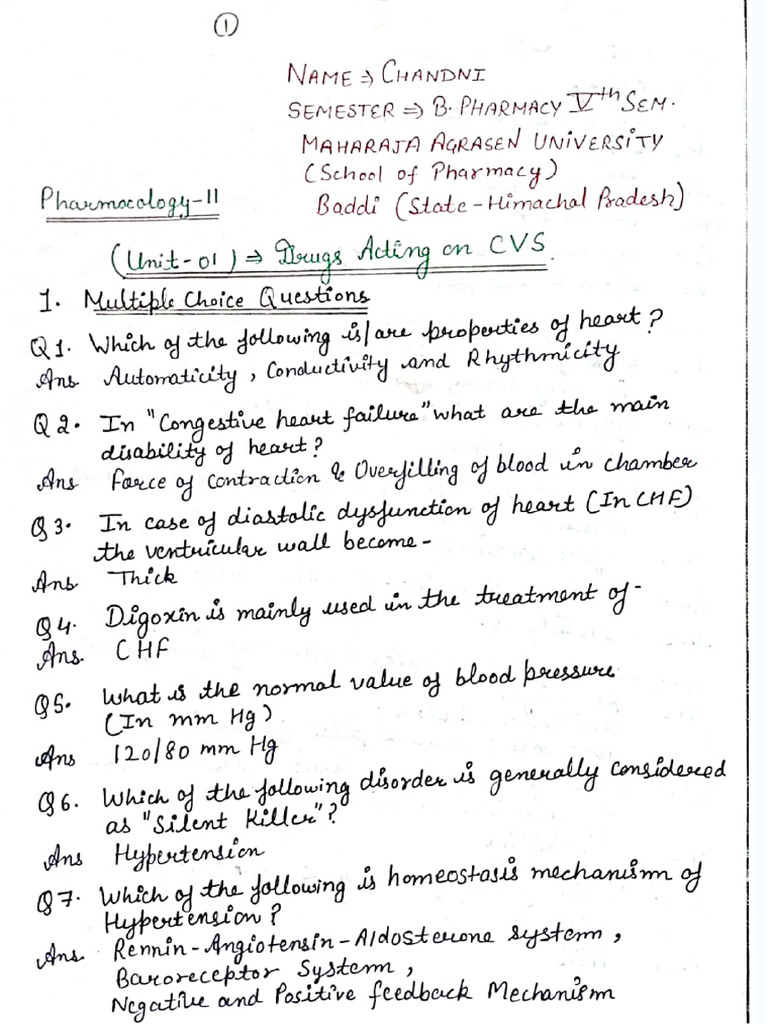 1
NAME ⇒ CHANDNI
SEMESTER ⇒ B. PHARMACY Vth SEM.
MAHARAJA AGRASEN UNIVERSITY
(School of Pharmacy)
Pharmocology-II
Baddi (State-Himachal Pradesh)
(Unit-01) ⇒ Drugs Acting on CVS.
1. Multiple Choice Questions
Q1. Which of the following is/are properties of heart?
Ans. Automaticity, Conductivity and Rhythmicity
Q2. In "Congestive heart failure" what are the main
disability of heart?
Ans Force of contraction & Overfilling of blood in chamber
Q3. In case of diastolic dysfunction of heart (In CHF)
the ventricular wall become-
Ans. Thick
Q4. Digoxin is mainly used in the treatment of-
Ans. CHF
Q5. What is the normal value of blood pressure
(In mm Hg)
Ans 120/80 mm Hg
Q6. Which of the following disorder is generally considered
as "Silent Killer"?
Ans Hypertension
Q7. Which of the following is homeostasis mechanism of
Hypertension?
Ans. Rennin-Angiotensin-Aldosterone system,
Baroreceptor System,
Negative and Positive feedback Mechanism